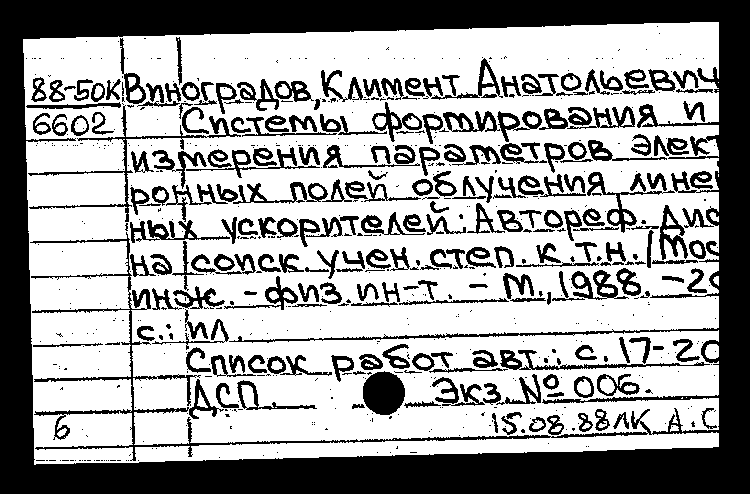 88-50К Виноградов, Климент Анатольевич
6602 Системы формирования и
измерения параметров элект
ронных полей облучения лине
ных ускорителей: Автореф. дис
на соиск. учен. степ. к.т.н. / Мос
инж. - физ. ин-т. - М., 1988. - 20
с.: ил.
Список работ авт.: с. 17-20
ДСП. Экз. № 006.
6 15.08.88 ЛК А.С